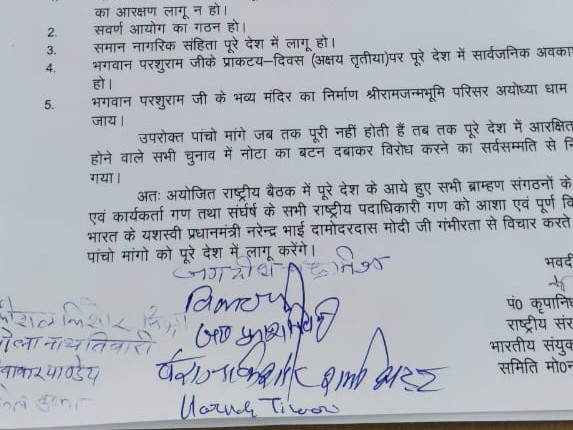 का आरक्षण लागू न हो।
2. सवर्ण आयोग का गठन हो।
3. समान नागरिक संहिता पूरे देश में लागू हो।
4. भगवान परशुराम जीके प्राकटय–दिवस (अक्षय तृतीया)पर पूरे देश में सार्वजनिक अवका
हो।
5. भगवान परशुराम जी के भव्य मंदिर का निर्माण श्रीरामजन्मभूमि परिसर अयोध्या धाम
जाय।
उपरोक्त पांचो मांगे जब तक पूरी नहीं होती हैं तब तक पूरे देश में आरक्षित
होने वाले सभी चुनाव में नोटा का बटन दबाकर विरोध करने का सर्वसम्मति से नि
गया।
अतः अयोजित राष्ट्रीय बैठक में पूरे देश के आये हुए सभी ब्राम्हण संगठनों के
एवं कार्यकर्ता गण तथा संर्घष के सभी राष्ट्रीय पदाधिकारी गण को आशा एवं पूर्ण वि
भारत के यशस्वी प्रधानमंत्री नरेन्द्र भाई दामोदरदास मोदी जी गंभीरता से विचार करते
पांचो मांगो को पूरे देश में लागू करेंगे।
भवदी
पं0 कृपानिध
राष्ट्रीय संर
भारतीय संयुक
समिति मो0न
किशोर
तिवारी
पाण्डेय